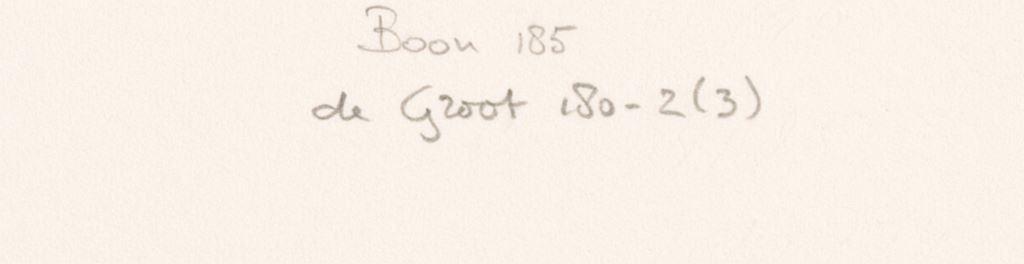 Boon 185
de Groot 180-2(3)